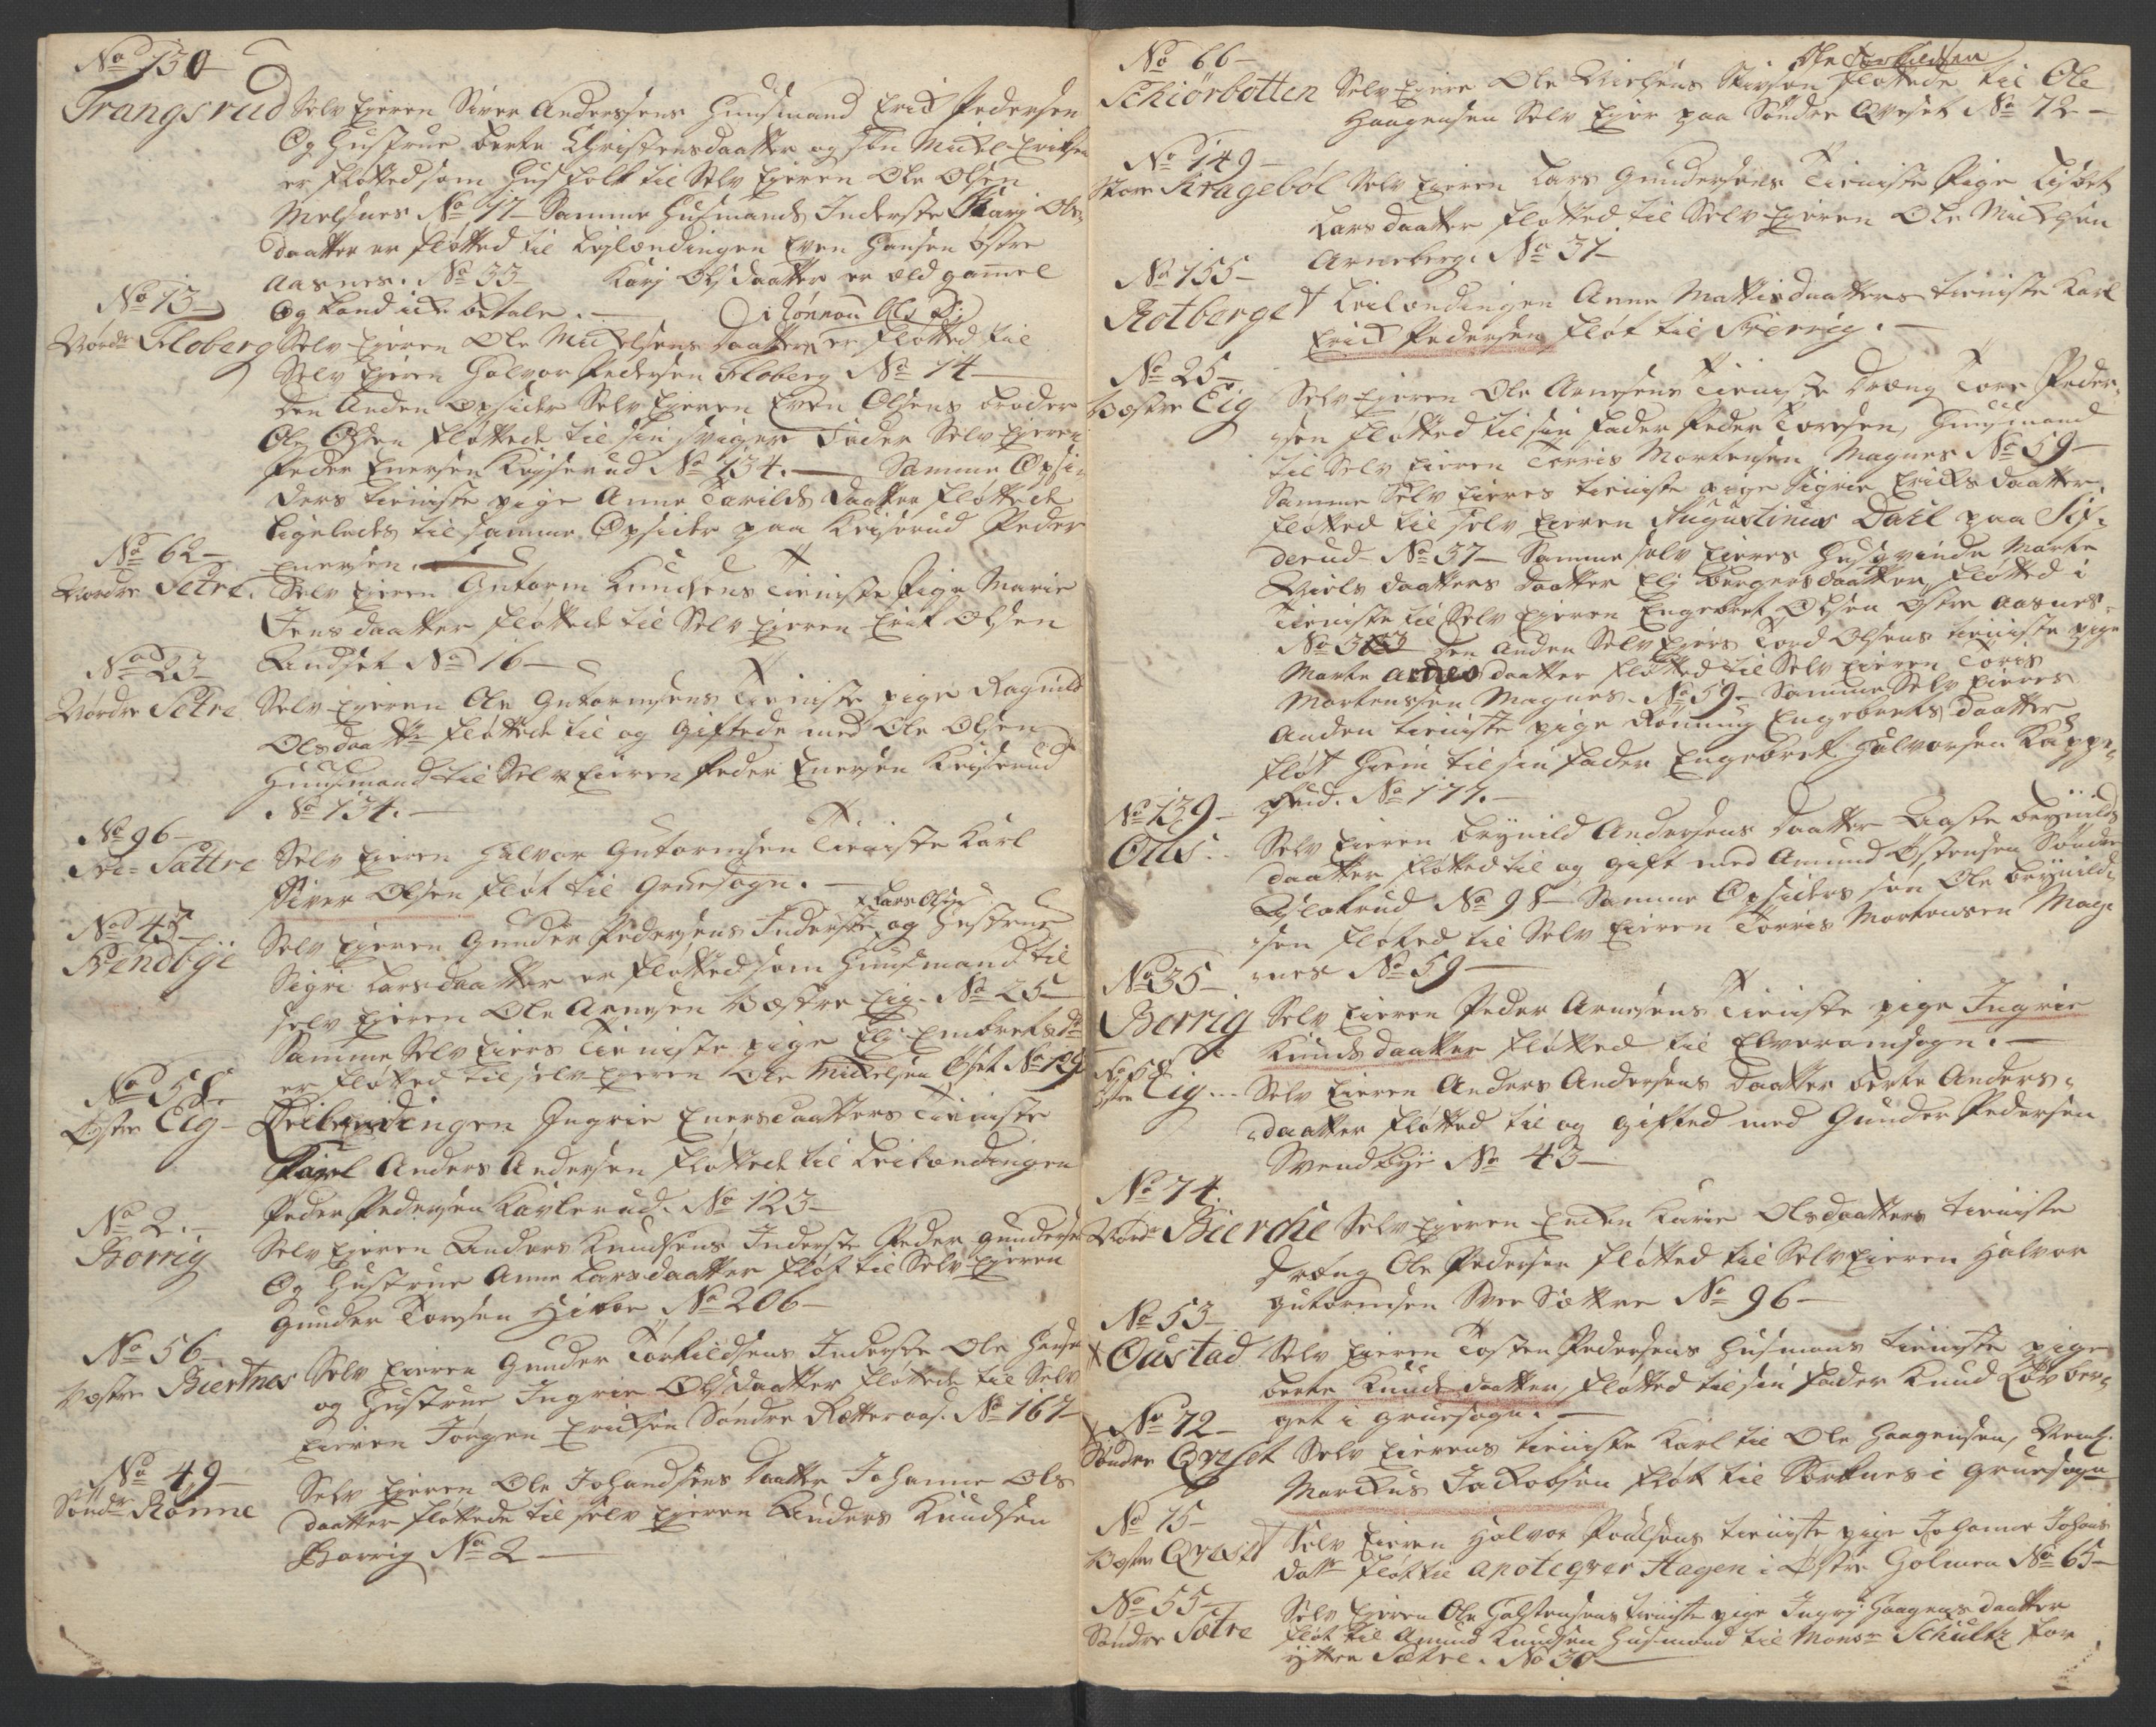 No 130
Trangsrud Selv Ejeren Siver Anderssens Huusmand Erich Pedersen
Og Hustrue Berte Christensdaatter og søn Mickel Eriksen
er fløtted som Huusfolk til Selv Ejeren Ole Olsen
Melsnes No 17 - Samme Huusmands Inderste Karj Ols-
daatter er fløtted til Leylændingen Even Hansen østre
Aasnes. No 33 Karj Olsdaatter er æld gammel
Og kand icke betale.
No 13 Rønnou Olsd:
Nordr Floberg Selv Ejeren Ole Mickelsens Daatter er fløtted til
Selv Ejeren Halvor Pedersen Floberg No 14
Den Anden Opsider Selv Ejeren Even Olsens broder
Ole Olsen fløttede til sin sviger Fader Selv Ejeren
Peder Enersen Keyserud No 134. - Samme Opsi-
ders tieniste pige Anne Tarilds Daatter fløttede
ligeledes til samme Opsider paa Keiserud Peder
Enersen.
No 62
Nordre Setre. Selv Ejeren Gutorm Knudsens Tieniste Pige Marie
Jens daatter fløttede til Selv Ejeren Erik Olsen
Rudset No 16
No 23
Nordre Setre Selv Ejeren Ole Gutormsens Tieniste pige Ragnild
Olsdaatter fløttede til og giftede med Ole Olsen
Huusmand til Selv Eieren Peder Enersen Keiserud
No 134.
No 96
Sætre Selv Ejeren Halvor Gutormsen Tieniste Karl
Siver Olsen fløt til Gruesogn.
No 43 Lars Olsen
Svendbye Selv Ejeren Gunder Pedersens Inderste og Hustrue
Sigri Larsdaatter er fløtted som Huusmand til
selv Ejeren Ole Arnesen Væstre Eig. No 25
Samme Selv Eiers Tieniste pige Eli Embretsdr
er fløtted til selv Ejeren Ole Mickelsen Oset No 129
No 58.
Østre Eig Leilendingen Ingrie Enersdaatters Tieniste
Karl Anders Andersen fløttede til Leilændingen
Peder Pedersen Kavlerud. No 123
No 2.
Borrig Selv Ejeren Anders Knudsens Inderste Peder gundersen
Og Hustrue Anne Larsdaatter fløt til Selv Ejeren
Gunder Toresen No 206
No 56
Væstre Biertnes Selv Eieren Gunder Torkildsens Inderste Ole Hansen
og Hustrue Ingrie Olsdaatter fløttede til Selv
Eieren Jørgen Ericksen Søndre Rætteraas. No 167
No 49
Søndr Rønne Selv Ejeren Ole Johandsens Daatter Johanne Ols
daatter fløttede til selv Ejeren Anders Knudsen
Borrig No 2
No 66 Ole Torkildsen
Schiørbotten Selv Eiere Ole Nielsens Stivsøn fløttede til Ole
Haagensen Selv Ejer paa Søndre Qveset No 72
No 149
Store Krageból Selv Ejeren Lars Gundersens Tieniste Pige Lisbet
Lars daatter fløtted til Selv Ejeren Ole Mickelsen
Arneberg. No 31
No 155
Rotberget Leilændingen Anne Mattisdaatters tieniste Karl
Erick Pedersen fløt til Sverrig.
No 25
Væstre Eig Selv Ejeren Ole Arnesens Tieniste Dreng Tore Peder-
sen fløtted til sin Fader Peder Toresen, Huusmand
til Selv Eieren Torris Mortensen Magnes No 59
Samme Selv Eieres tieniste pige Sigrie Ericksdaatter
fløtted til selv Eieren Augustinus Dahl paa
derud No 37 - Samme selv Eieres Husqvinde Marte
Niels daatters daatter Eli Bergersdaatter, fløtted i
Tieniste til Selv Ejeren Engebret Olsen Østre Aasnes
No 33 Den anden Selv Ejers Tord Olsens tieniste pige
Marte daatter fløtted til Selv Eieren Toris
Mortenssen Magnes. No 59 - Samme Selv Eieres
Anden tieniste pige Rønnoug Engebrets daatter
fløt Hiem til sin fader Engebret Halvorsen Kappe-
rud. No 177.
No 139
Ous. Selv Eieren Brynild Andersens Daatter Aaste Brynilds
daatter fløtted til og gift med Amund Østensen Søndre
No 98 - Samme Opsiders søn Ole Brynild-
sen fløtted til Selv Eieren Torris Mortensen Mag-
nes No 59
No 35
Berrig Selv Eieren Peder Arnesens Tieniste pige Ingrie
Knuds daatter fløtted til Elverumsogn.
No 58
Østre Eig Selv Eieren Anders Andersens Daatter Berte Anders-
daatter fløtted til og gifted med Gunder Pedersen
Svendbye No 43
No 74.
Nordr Bierche Selv Ejeren Encken Karie Olsdaatters tieniste
Dreng Ole Pedersen fløtted til Selv Eieren Halvor
Gutormsen Sætre No 96
No 53
Oustad Selv Eieren Tosten Pedersens Husmans tieniste pige
Berte Knuds daatter, fløtted til sin Fader Knud Løvber-
get i Gruesogn.
No 72
Søndre Qveset Selv Eierens tieniste Karl til Ole Haagensen, Neml:
Marckus Jackobsen fløt til Torknes i Gruesogn
No 15
Væstre Qveset Selv Eieren Halvor Poulsens tieniste pige Johanne Johans
datr fløt til Apoteqver Hagen i Østre Holmen No 65
No 55
Søndre Sætre Selv Ejeren Ole Halstensens tieniste pige Ingrj Haagensdaatter
fløt til Amund Knudsen Husmand til Monsr Schultz for
yttre Sætre. No 30